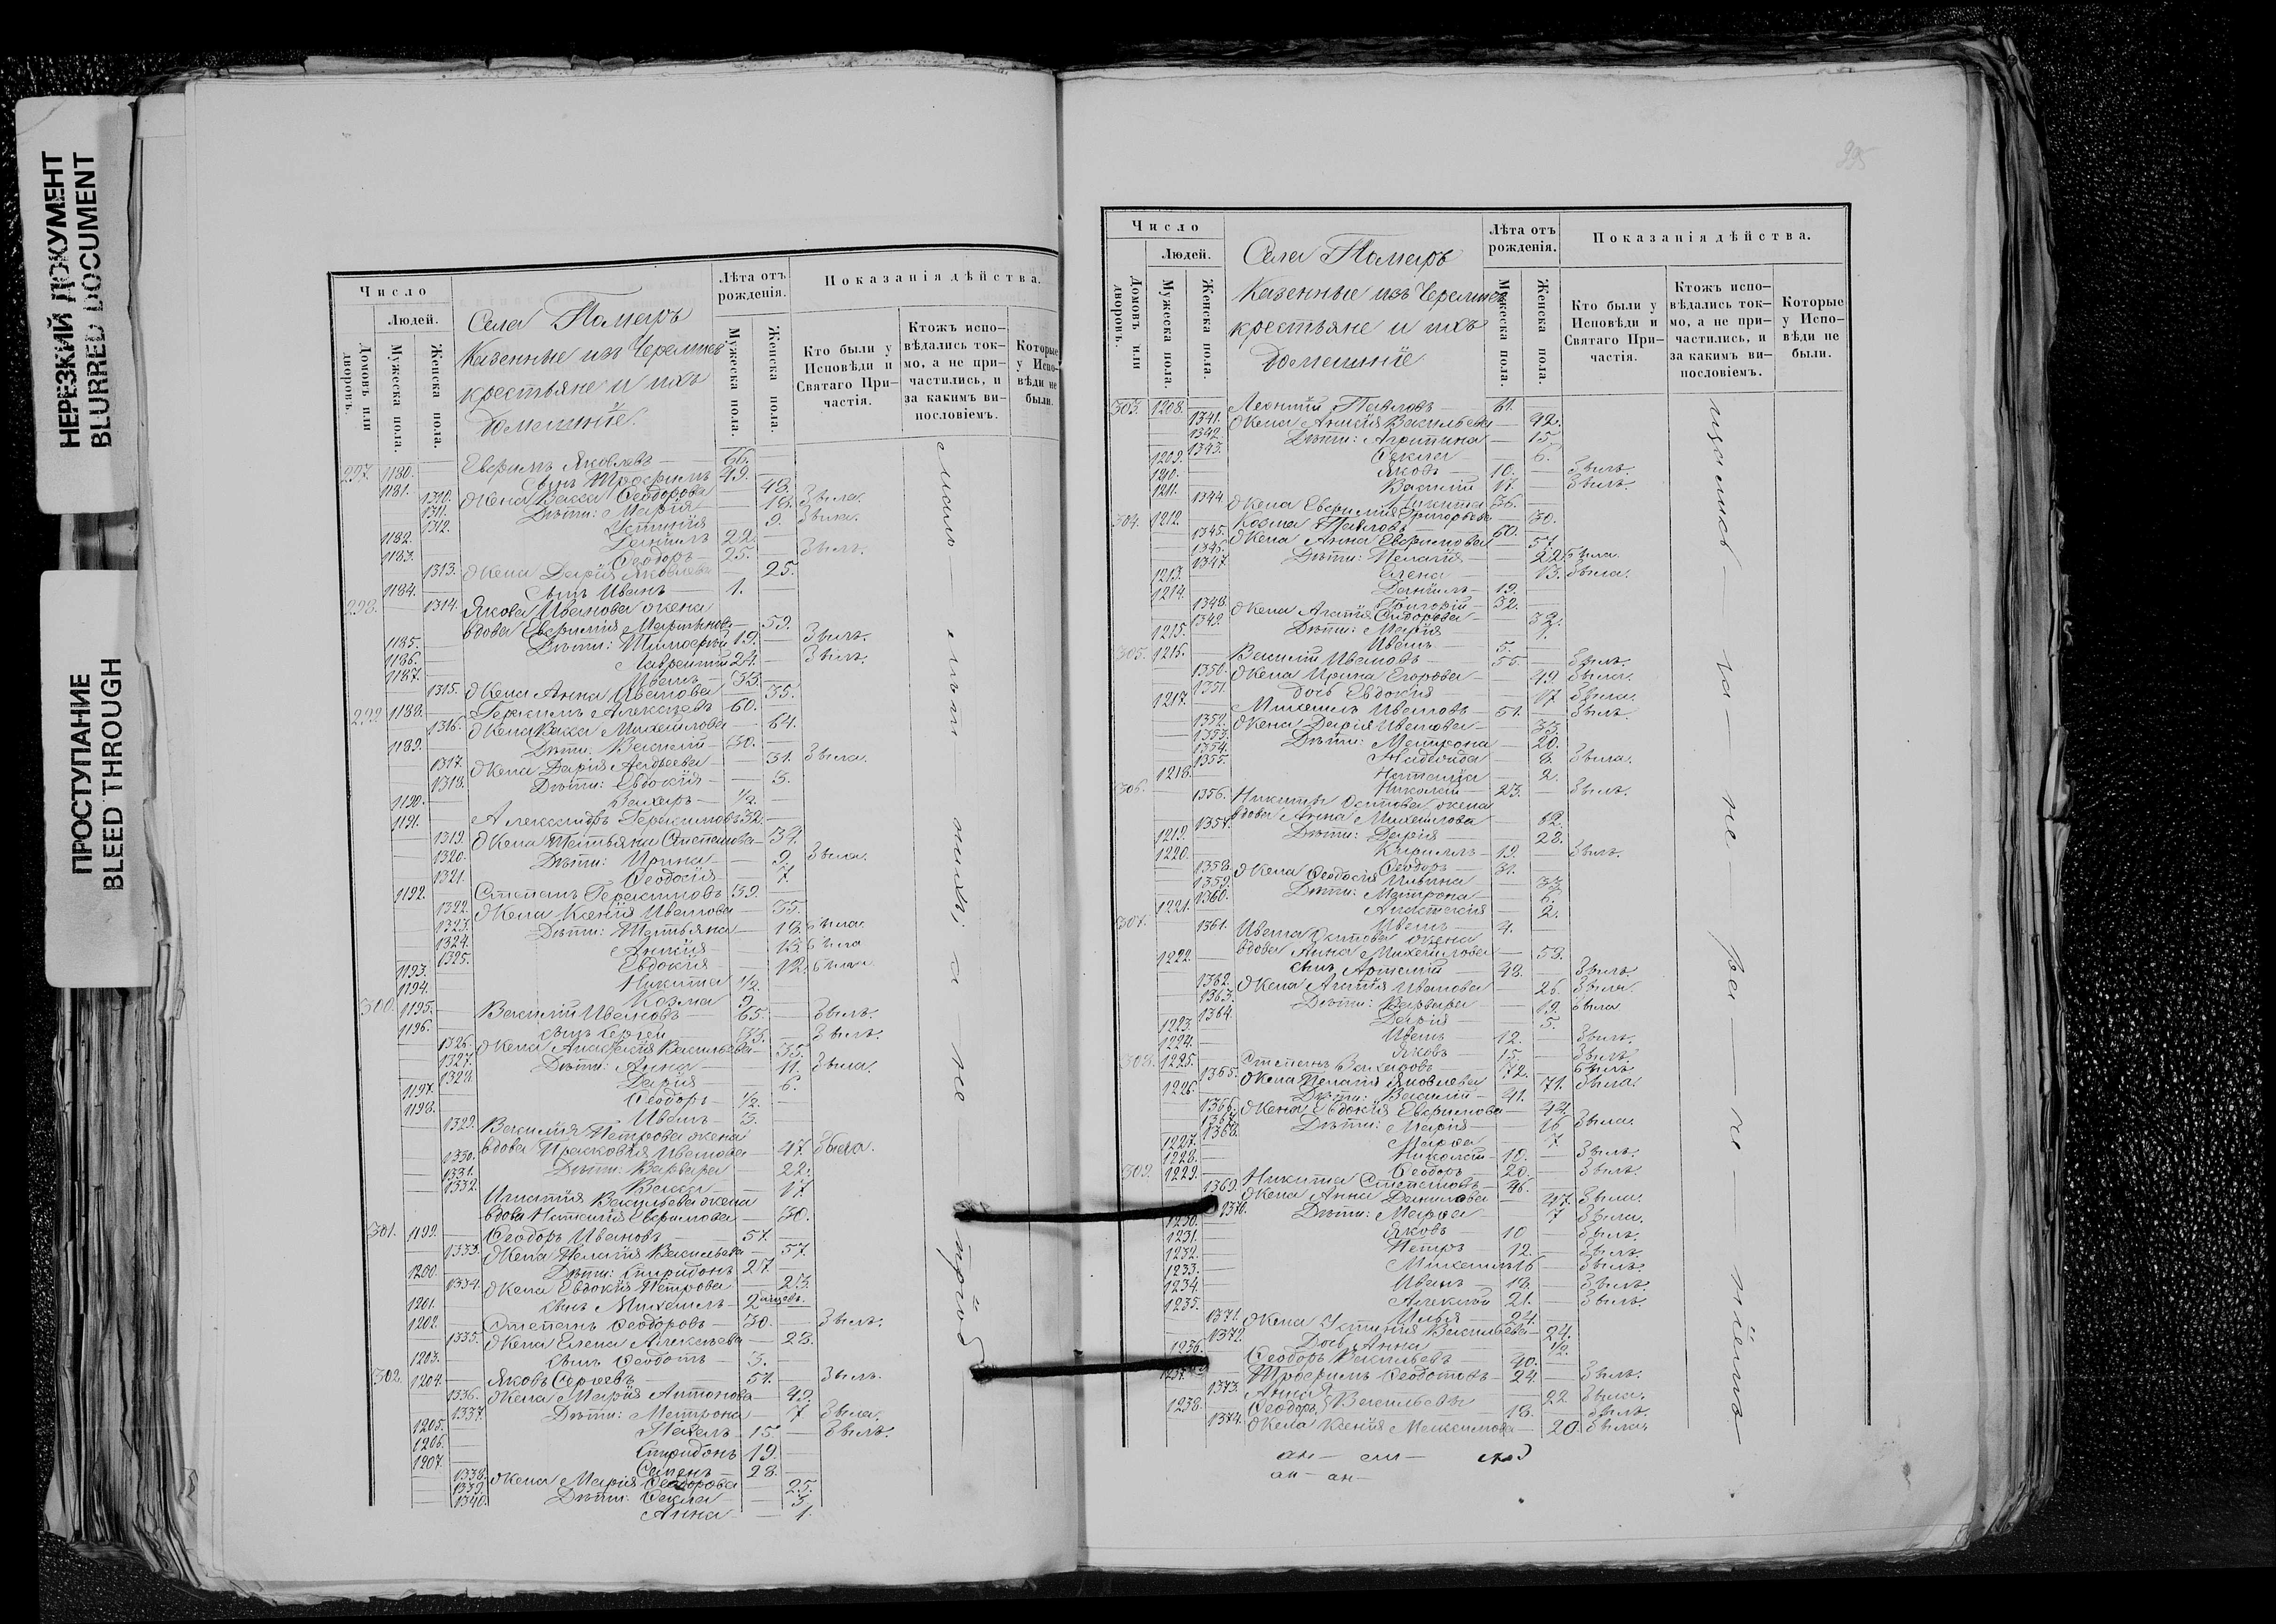 НЕРЕЗКИЙ ДОКУМЕНТ
BLURRED DOCUMENT
ПРОСТУПАНИЕ
BLEED THROUGH
Число
Людей.
Домовъ или дворовъ.
Мужеска пола.
Женска пола.
Села Помаръ
Казенные изъ Черемисъ
крестьяне и ихъ
домашнiе.
Лѣта отъ рожденiя.
Мужеска пола.
Женска пола.
Показанiя дѣйства.
Кто были у Исповѣди и Святаго Причастiя.
Ктожъ исповѣдались токмо, а не причастились, и за какимъ винословiемъ.
Которые у Исповѣди не были.
297. 1180. Ефримъ Яковлевъ 66.
1181. сынъ Трофимъ 49.
1310. Жена Васса Ѳеодорова 48.
1311. Дѣти: Марiя 18. была.
1312. Устинiя 9. была.
1182. Данiилъ 22.
1183. Ѳеодоръ 25. былъ.
1313. Жена Дарiя Яковлева 25.
1184. сынъ Иванъ 1.
298. 1314. Якова Иванова жена
вдова Евфимiя Мартынова 59.
1185. Дѣти: Тимофей 19. былъ.
1186. Лаврентiй 24. былъ.
1187. Иванъ 33.
1315. Жена Анна Иванова 35.
299. 1188. Герасимъ Алексѣевъ 60.
1316. Жена Васса Михайлова 64.
1189. Дѣти: Василiй 30.
1317. Жена Дарiя Авдѣева 31. была.
1318. Дѣти: Евдокiя 3.
1190. Захаръ 1/2.
1191. Александръ Герасимовъ 32.
1319. Жена Татьяна Степанова 34.
1320. Дѣти: Ирина 9. была.
1321. Ѳеодосiя 7.
1192. Степанъ Герасимовъ 39.
1322. Жена Ксенiя Иванова 35.
1323. Дѣти: Татьяна 18. была.
1324. Анисiя 13. была
1325. Евдокiя 12. была
1193. Никита 1/2.
1194. Козма 9.
300. 1195. Василiй Ивановъ 65. былъ.
1196. сынъ Сергѣй 33. былъ.
1326. Жена Анастасiя Васильева 35.
1327. Дѣти: Анна 11. была.
1328. Дарiя 6.
1197. Ѳеодоръ 1/2.
1198. Иванъ 3.
1329. Василiя Петрова жена
вдова Прасковiя Иванова 47. была.
1330. Дѣти: Варвара 22.
1331. Васса 17
1332. Игнатiя Васильева жена
вдова Наталiя Ефримова 30.
301. 1199. Ѳеодоръ Ивановъ 57.
1333. Жена Пелагiя Васильева 57.
1200. Дѣти: Спиридонъ 27.
1334. Жена Евдокiя Петрова 23.
1201. сынъ Михаилъ 2
1202. Степанъ Ѳеодоровъ 30. былъ.
1335. Жена Елена Алексѣева 28.
1203. сынъ Ѳеодотъ 3.
302. 1204. Яковъ Сергѣевъ 51. былъ.
1336. Жена Марiя Антонова 49.
1337. Дѣти: Матрона 7 была.
1205. Павелъ 15. былъ.
1206. Спиридонъ 19.
1207. Семенъ 28.
1338. Жена Марiя Ѳеодорова 25.
1339. Дѣти: Ѳекла 3
1340. Анна 1.
225
Число
Людей.
Домовъ или дворовъ.
Мужеска пола.
Женска пола.
Села Помаръ
Казенные изъ Черемисъ
крестьяне и ихъ
домашнiе
Лѣта отъ рожденiя.
Мужеска пола.
Женска пола.
Показанiя дѣйства.
Кто были у Исповѣди и Святаго Причастiя.
Ктожъ исповѣдались токмо, а не причастились, и за какимъ винословiемъ.
Которые у Исповѣди не были.
303. 1208. Леонтiй Павловъ 61.
1341. Жена Анисiя Васильева 42.
1342. Дѣти: Агрипина 15.
1343. Ѳекла 6.
1209. Яковъ 10. былъ.
1210. Василiй 17. былъ.
1211. Никита 36.
1344. Жена Евфимiя Григорьева 30.
304. 1212. Козма Павловъ 60.
1345. Жена Анна Ефримова 57.
1346. Дѣти: Пелагiя 22. была.
1347. Елена 13. была.
1213. Данiилъ 19.
1214. Григорiй 32.
1348. Жена Агапiя Сидорова 32.
1349. Дѣти: Марiя 1.
1215. Иванъ 5.
305. 1216. Василiй Ивановъ 55. былъ.
1350. Жена Ирина Егорова 49 была.
1351. дочь Евдокiя 17 была.
1217. Михаилъ Ивановъ 51. былъ.
1352. Жена Дарiя Иванова 33.
1353. Дѣти: Матрона 20.
1354. Надежда 8. была.
1355. Наталiя 2.
1218. Николай 23. былъ.
306. 1356. Никиты Осипова жена
вдова Анна Михайлова 62.
1357. Дѣти: Дарiя 28.
1219. Кириллъ 19. былъ.
1220. Ѳеодоръ 31.
1358. Жена Ѳеодосiя Ильина 33.
1359. Дѣти: Матрона 6.
1360. Анастасiя 2.
1221. Иванъ 4.
307. 1361. Ивана Осипова жена
вдова Анна Михайлова 53.
1222. сынъ Артемiй 48. былъ.
1362. Жена Агапiя Иванова 26. была.
1363. Дѣти: Варвара 19. была
1364. Дарiя 5.
1223. Иванъ 12. былъ.
1224. Яковъ 15. былъ.
308. 1225. Степанъ Захаровъ 72. былъ
1365. Жена Пелагiя Яковлева 71. была.
1226. Дѣти: Василiй 41.
1366. Жена Евдокiя Ефримова 44.
1367. Дѣти: Марiя 16 была.
1368. Марѳа 7
1227. Николай 10. былъ.
1228. Ѳеодоръ 20. былъ.
309. 1229. Никита Степановъ 46.
1369. Жена Анна Данилова 47. была.
1370. Дѣти: Марѳа 7 была.
1230. Яковъ 10 былъ.
1231. Петръ 12. былъ.
1232. Михаилъ 16 былъ.
1233. Иванъ 18. былъ.
1234. Алексѣй 21. былъ.
1235. Илья 24.
1371. Жена Устинiя Васильева 24.
1372. Дочь Анна 1/2.
1236. Ѳеодоръ Васильевъ 40.
1237. Трофимъ Ѳеодотовъ 24. былъ.
1373. Анна 22 была.
1238. Ѳеодоръ Васильевы 18. былъ.
1374. Жена Ксенiя Максимова 20 была.